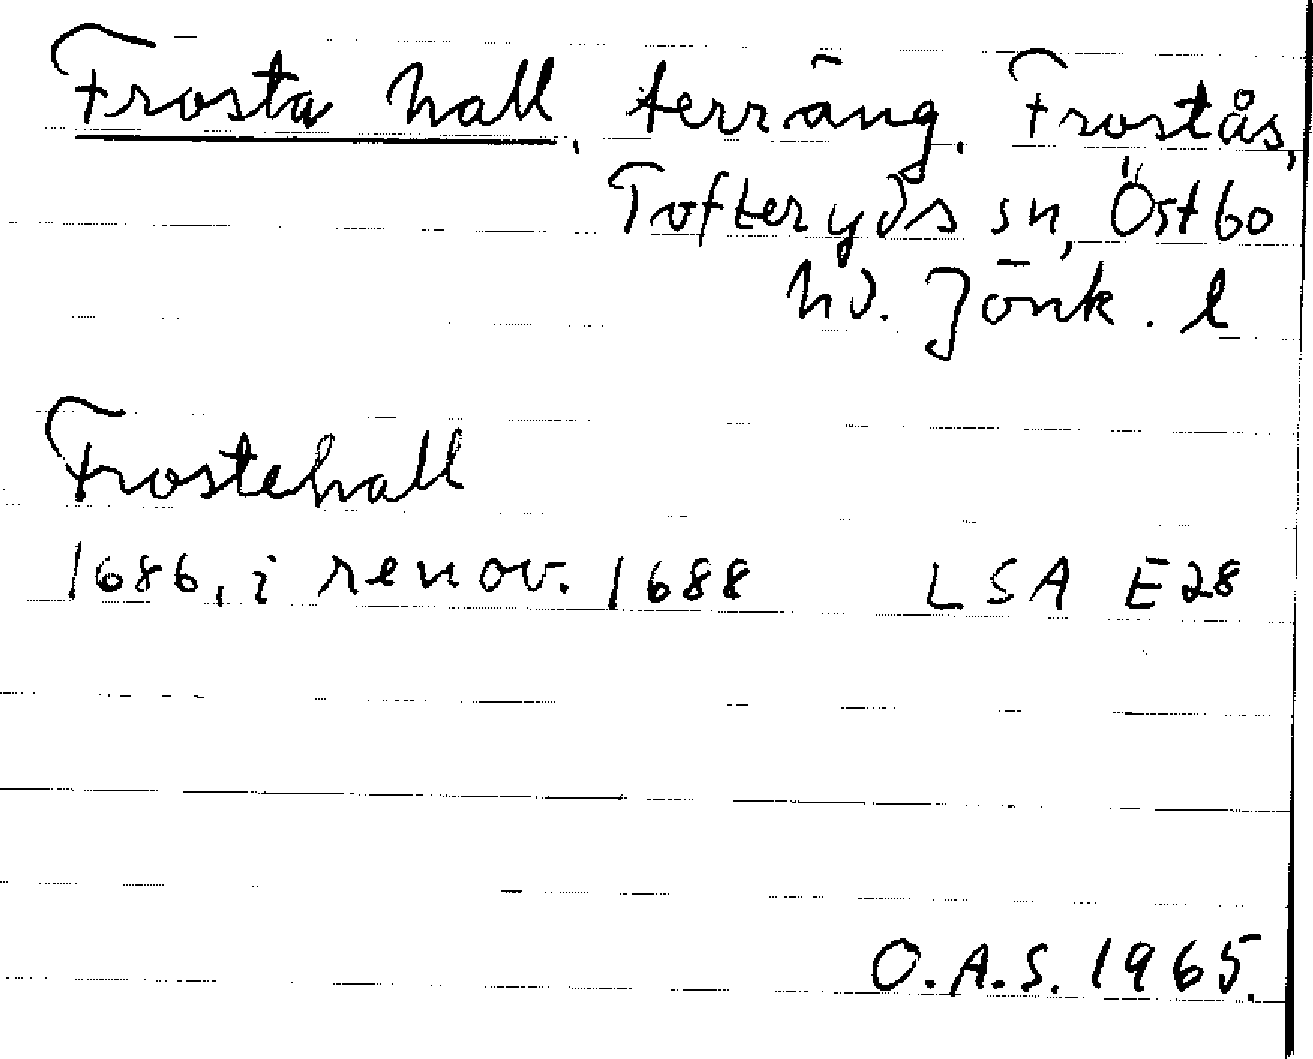 Frosta hall, terräng. Frostås,
Tofteryds sn, Östbo
hd. Jönk. l
Frostehall
1686, i renov. 1688 LSA E28
O.A.S. 1965.